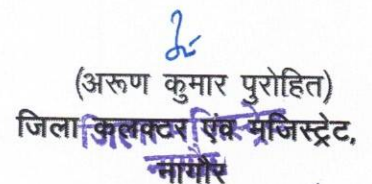 (अरूण कुमार पुरोहित)
जिला कलक्टर एंव मजिस्ट्रेट,
नागौर